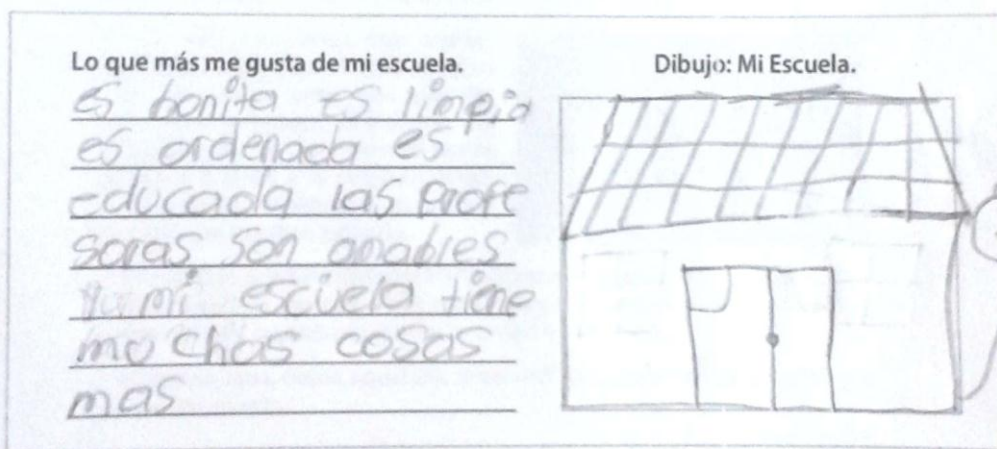 Lo que más me gusta de mi escuela.
es bonita es limpia
es ordenada es
educada las profe
soras son amables
mi escuela tiene
muchas cosas
mas
Dibujo: Mi Escuela.